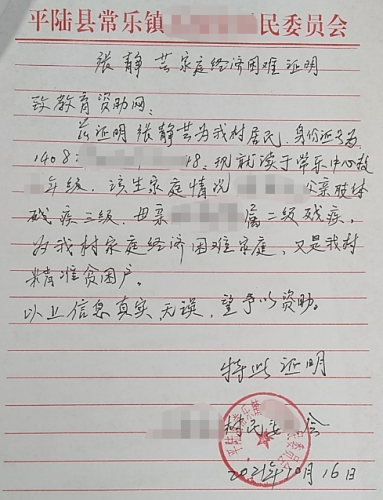 平陆县常乐镇 民委员会
张静芸家庭经济困难证明
致教育资助网：
兹证明张静芸为我村居民，身份证号为
1408 18，现就读于常乐中心校
年级，该生家庭情况 父亲肢体
残疾三级，母亲 属二级残疾，
为我村家庭经济困难家庭，又是我村
精准贫困户。
以上信息真实无误，望予以资助。
特此证明
村民委 会
2021年10月16日